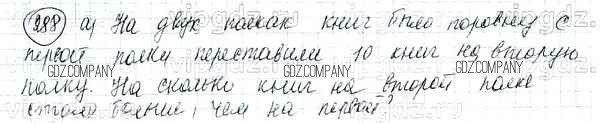 288 а) На двух полках книг было поровну. С
первой полки переставили 10 книг на вторую
GDZCOMPANY GDZCOMPANY GDZCOMPANY
полку. На сколько книг на второй полке
стало больше, чем на первой?